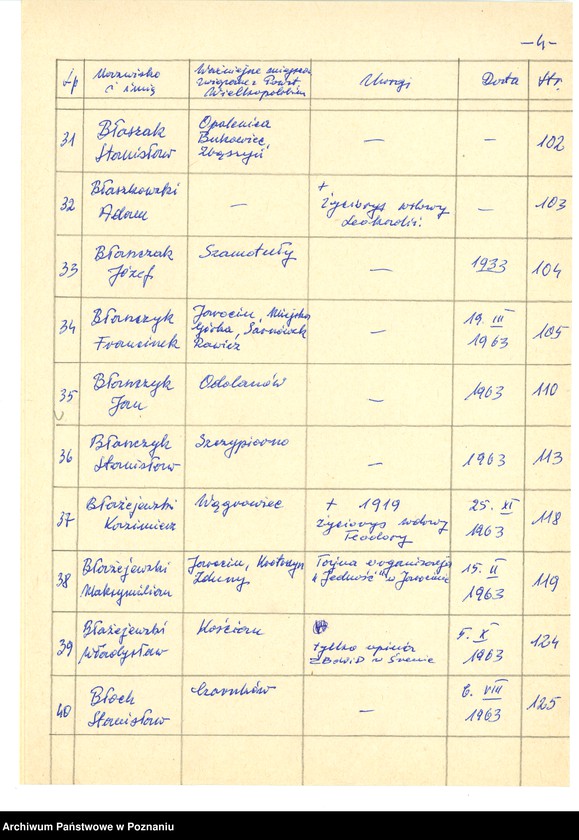 -4-
Lp
Nazwisko
i imię
Ważniejsze miejsca
związane z Powst.
Wielkopolskim
Uwagi
Data
Str.
31
Błaszak
Stanisław
Opalenica
Bukowiec,
Zbąszyń
—
—
102
32
Błaszkowski
Adam
—
+
Życiorys wdowy
Leokadii
—
103
33
Błaszczak
Józef
Szamotuły
—
1933
104
34
Błaszczyk
Franciszek
Jarocin, Miejska
Górka, Sarnówka
Rawicz
—
19. III
1963
105
35
Błaszczyk
Jan
Odolanów
—
1963
110
36
Błaszczyk
Stanisław
Szczypiorno
—
1963
113
37
Błażejewski
Kazimierz
Wągrowiec
+ 1919
życiorys wdowy
Teodory
25. XI
1963
118
38
Błażejewski
Maksymilian
Jarocin, Kostrzyn
Zduny
Tajna organizacja
"Jedność" w Jarocinie
15. II
1963
119
39
Błażejewski
Władysław
Kościan
tylko opinia
ZBoWiD w Śremie
5. X
1963
124
40
Błoch
Stanisław
Czarnków
—
6. VIII
1963
125
Archiwum Państwowe w Poznaniu